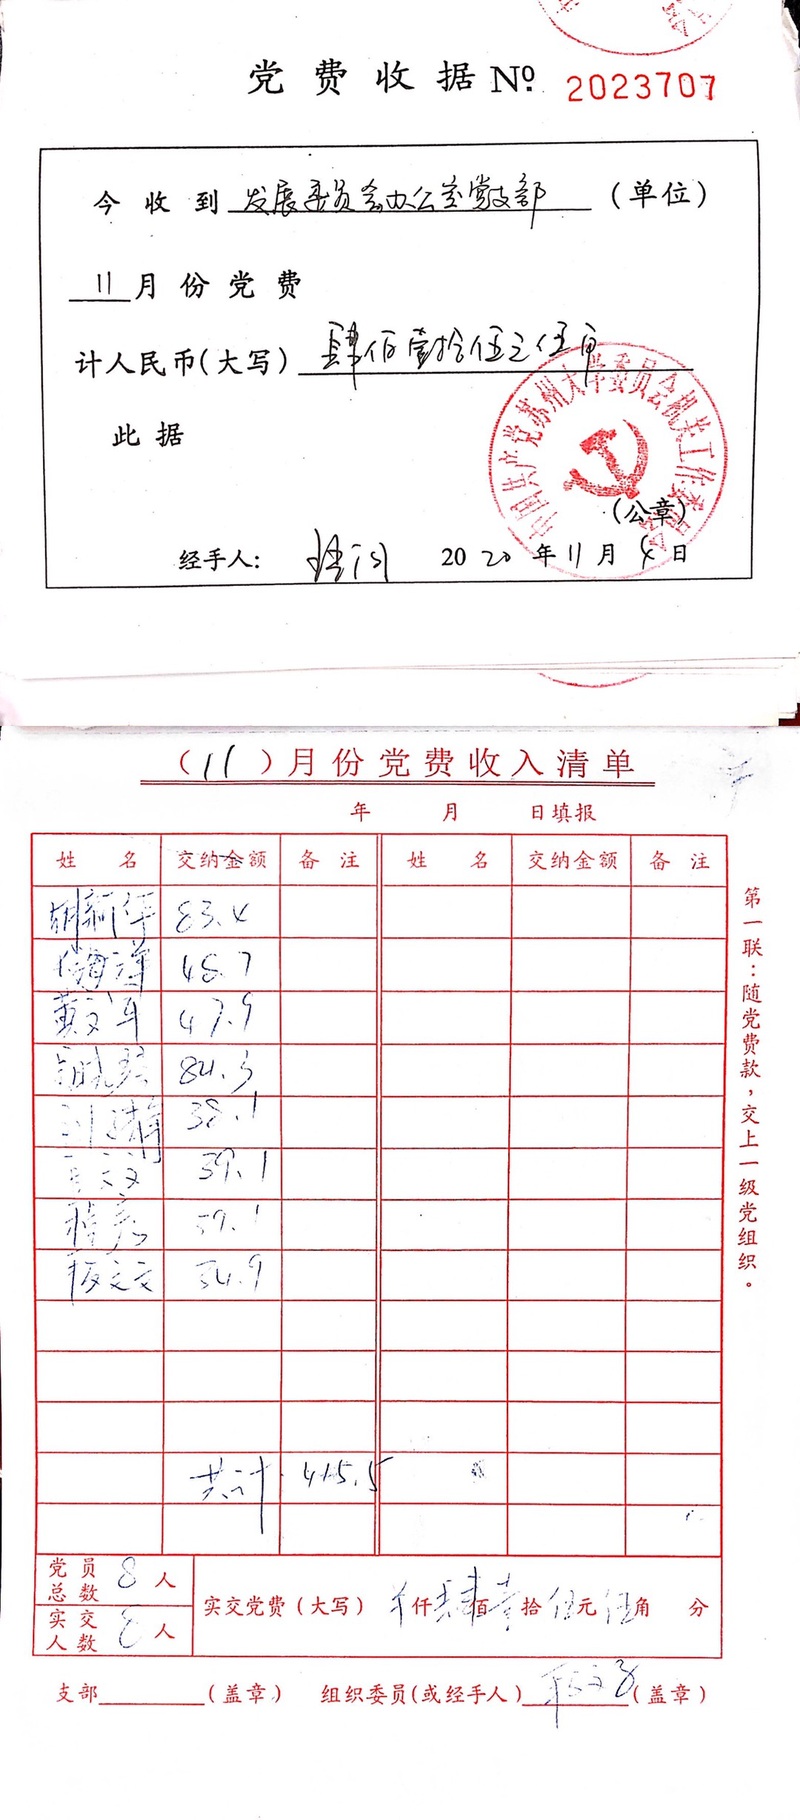 党费收据 Nº 2023707
今收到 发展委员会办公室党支部 (单位)
11 月份党费
计人民币(大写) 肆佰壹拾伍元伍角
此据
中国共产党苏州大学委员会机关工作委员会
(公章)
经手人: 2020 年 11 月 4 日
(11)月份党费收入清单
年 月 日填报
姓 名 交纳金额 备 注 姓 名 交纳金额 备 注
胡新华 83.4
海洋 48.7
黄文军 47.9
84.3
刘 静 38.1
文 39.1
39.1
张文文 34.9
共计 415.5
党员总数 8 人
实交人数 8 人
实交党费(大写) 仟 肆 佰 壹 拾 伍 元 伍 角 分
支部 (盖章) 组织委员(或经手人) (盖章)
第一联:随党费款,交上一级党组织。